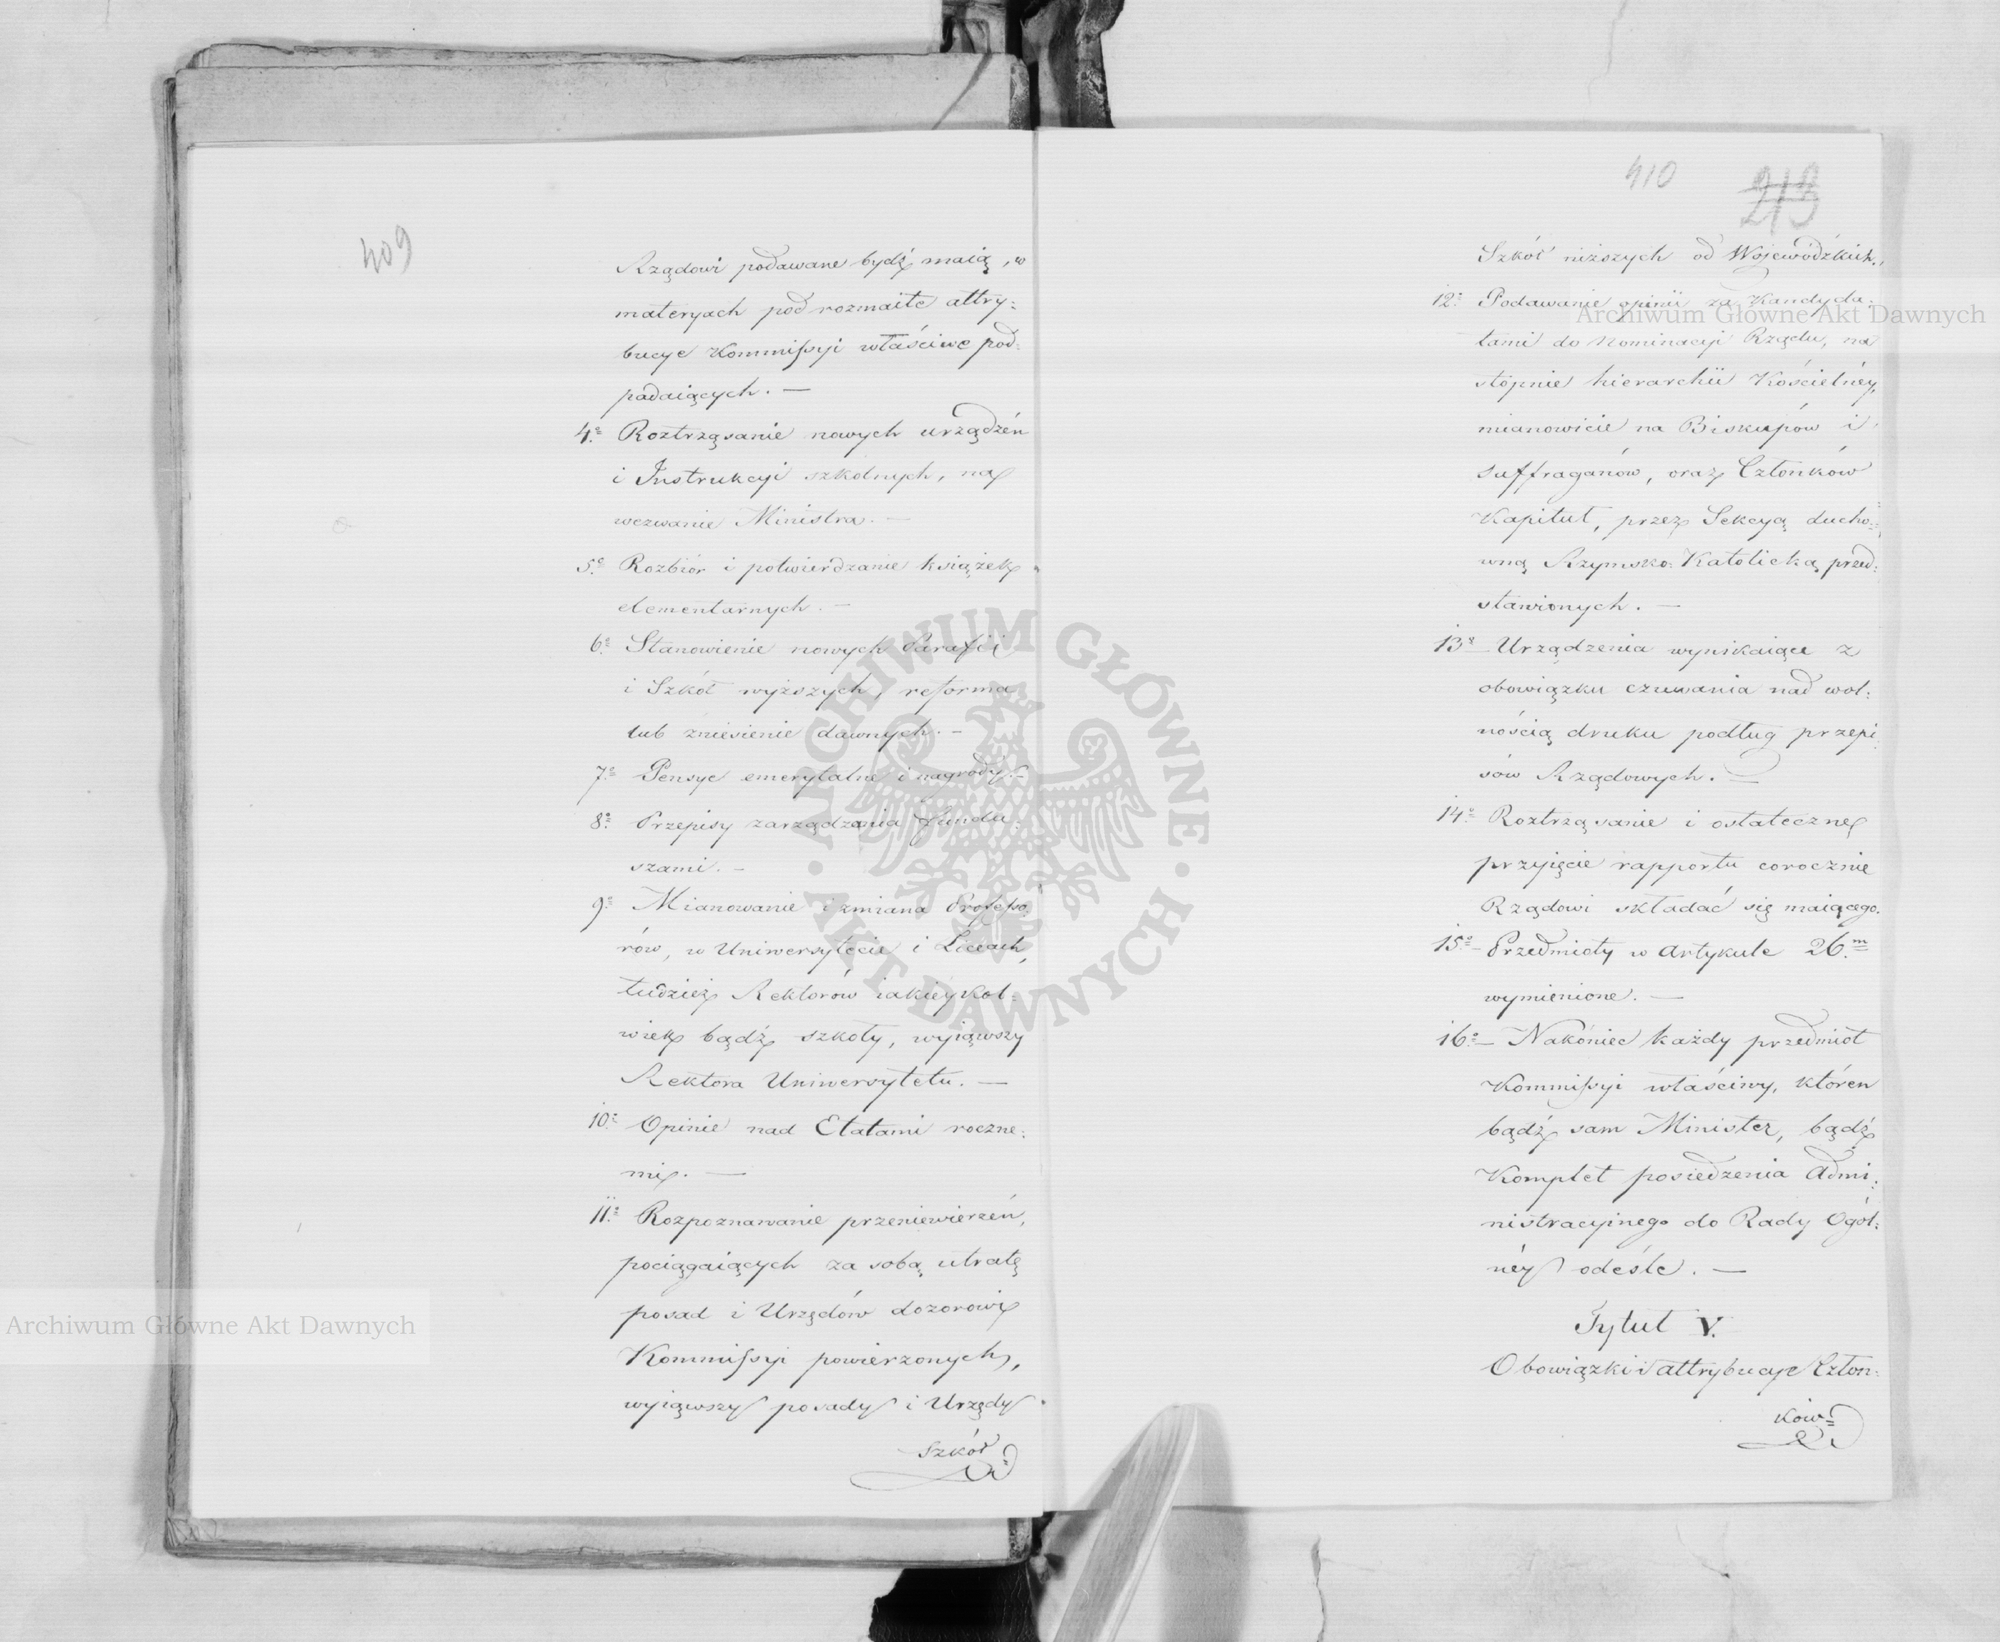 409
Rządowi podawane bydź maią, w
materyach pod rozmaite attry:
bucye Kommissyi właściwe pod:
padaiących. —
4.o Roztrząsanie nowych urządzeń
i Instrukcyi szkolnych, na
wezwanie Ministra. —
5.o Rozbiór i potwierdzanie książek
elementarnych. —
6.o Stanowienie nowych Parafii
i Szkół wyższych, reforma
lub zniesienie dawnych. —
7.o Pensye emerytalne i nagrody. —
8.o Przepisy zarządzania fundu:
szami. —
9.o Mianowanie i zmiana Professo:
rów, w Uniwersytecie i Liceach,
tudzież Rektorów iakieykol:
wiek bądź szkoły, wyiąwszy
Rektora Uniwersytetu. —
10.o Opinie nad Etatami roczne:
mi. —
11.o Rozpoznawanie przeniewierzeń,
pociągaiących za sobą utratę
posad i Urzędów dozorowi
Kommissyi powierzonych,
wyiąwszy posady i Urzędy
Szkół
410 213
Szkół niższych od Wojewódzkich.
12.o Podawanie opinii za Kandyda:
tami do Nominacyi Rządu, na
stopnie hierarchii Kościelnéy,
mianowicie na Biskupów i
suffraganów, oraz Członków
Kapituł, przez Sekcyą ducho:
wną Rzymsko: Katolicką przed:
stawionych. —
13.o — Urządzenia wynikaiące z
obowiązku czuwania nad wol:
nością druku podług przepi:
sów Rządowych. —
14.o Roztrząsanie i ostateczne
przyięcie rapportu corocznie
Rządowi składać się maiącego.
15.o — Przedmioty w Artykule 26.m
wymienione. —
16.o — Nakóniec każdy przedmiot
Kommissyi właściwy, któren
bądź sam Minister, bądź
Komplet posiedzenia Admi:
nistracyjnego do Rady Ogól:
néy odeśle. —
Tytuł V.
Obowiązki i attrybucye Człon:
ków
Archiwum Główne Akt Dawnych
Archiwum Główne Akt Dawnych
ARCHIWUM GŁÓWNE · AKT DAWNYCH ·